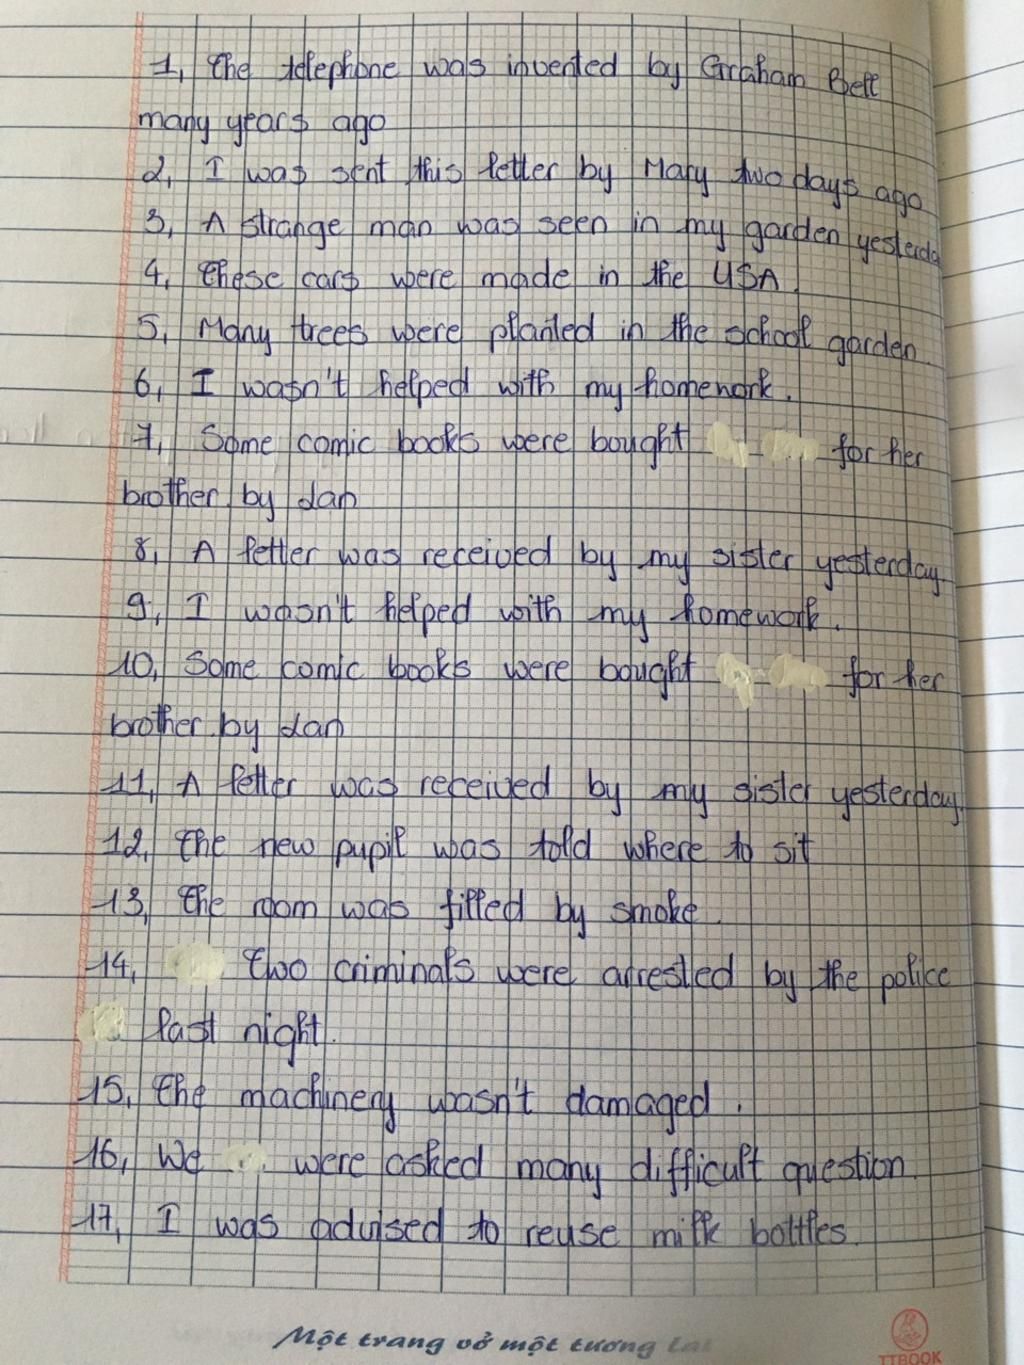 1, The telephone was invented by Graham Bell
many years ago
2, I was sent this letter by Mary two days ago
3, A strange man was seen in my garden yesterda
4, These cars were made in the USA.
5, Many trees were planted in the school garden
6, I wasn't helped with my homework.
7, Some comic books were bought for her
brother by dan
8, A letter was received by my sister yesterday.
9, I wasn't helped with my homework.
10, Some comic books were bought for her
brother by dan
11, A letter was received by my sister yesterday.
12, The new pupil was told where to sit
13, The room was filled by smoke.
14, Two criminals were arrested by the police
last night.
15, The machinery wasn't damaged.
16, We were asked many difficult question.
17, I was advised to reuse milk bottles.
Một trang vở một tương lai
TTBOOK